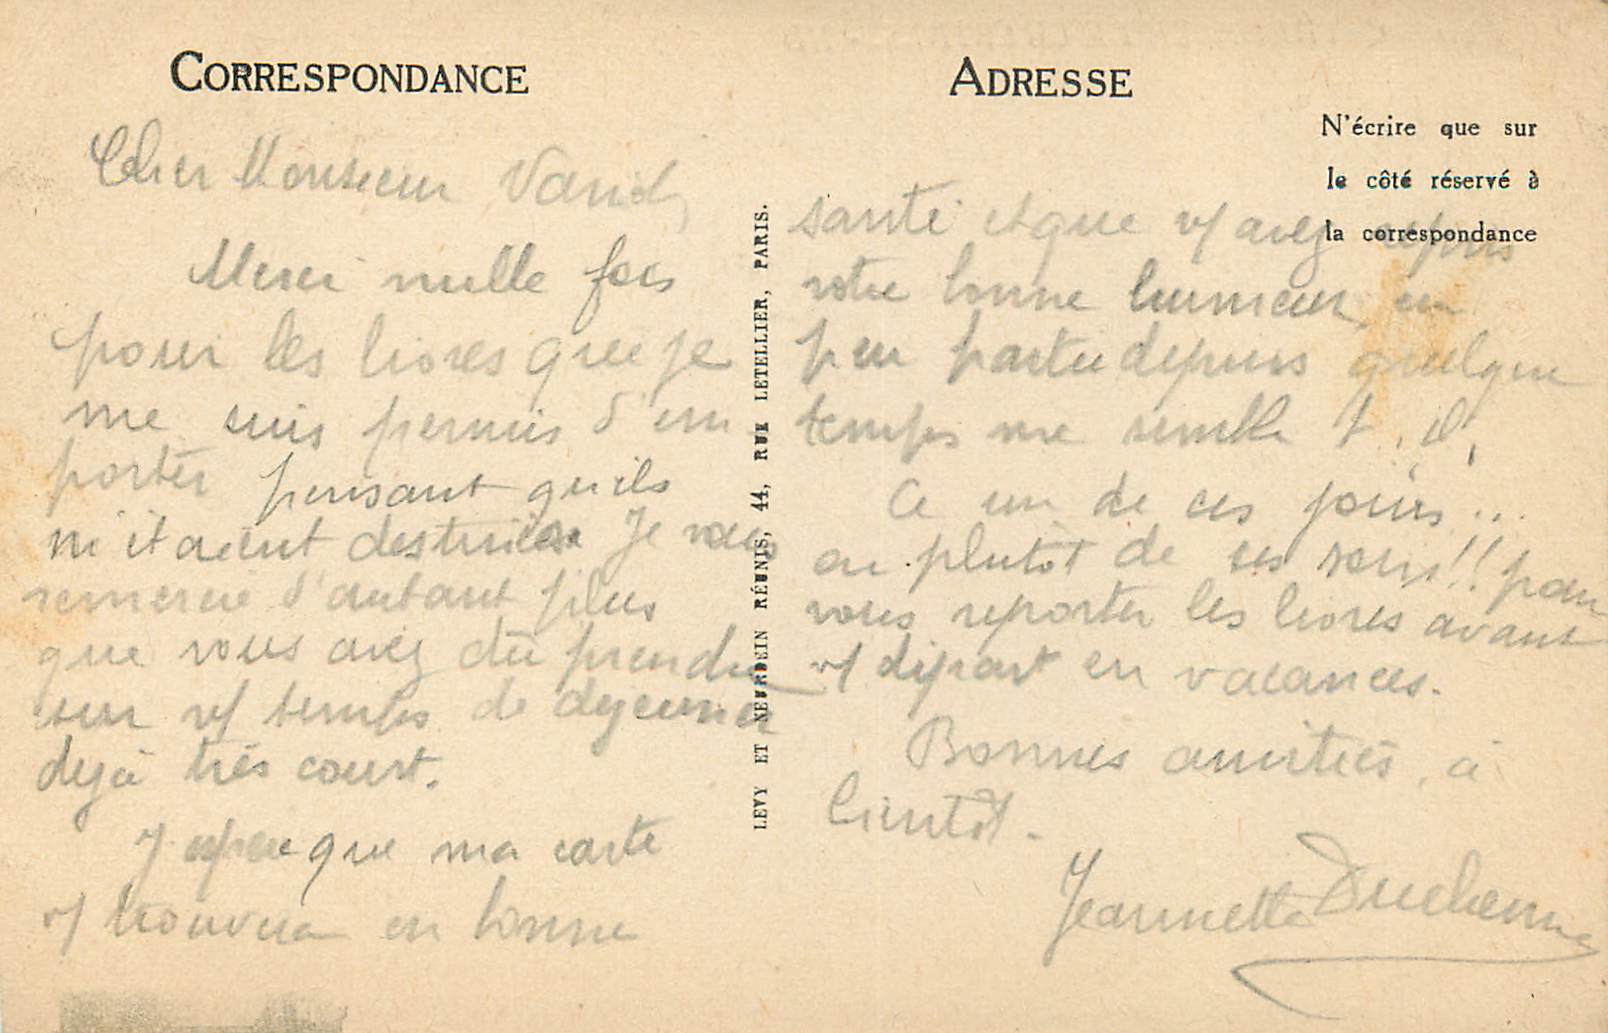 CORRESPONDANCE
Cher Monsieur
Merci mille fois
pour les livres que je
me suis permis d'em
porter pensant qu'ils
m'étaient destinés. Je vous
remercie d'autant plus
que vous avez dû prendre
sur v/ temps de dejeuner
dejà très court.
J'espère que ma carte
v/ trouvera en bonne
LEVY ET NEURDEIN RÉUNIS, 44, RUE LETELLIER, PARIS.
ADRESSE
N'écrire que sur
le côté réservé à
la correspondance
santé et que v/ avez repris
votre bonne humeur, un
peu partie depuis quelque
temps me semble t. il.
A un de ces jours...
ou plutôt de ces soirs!! pour
vous reporter les livres avant
v/ départ en vacances.
Bonnes amitiés, à
bientôt.
Jeannette Duchenne